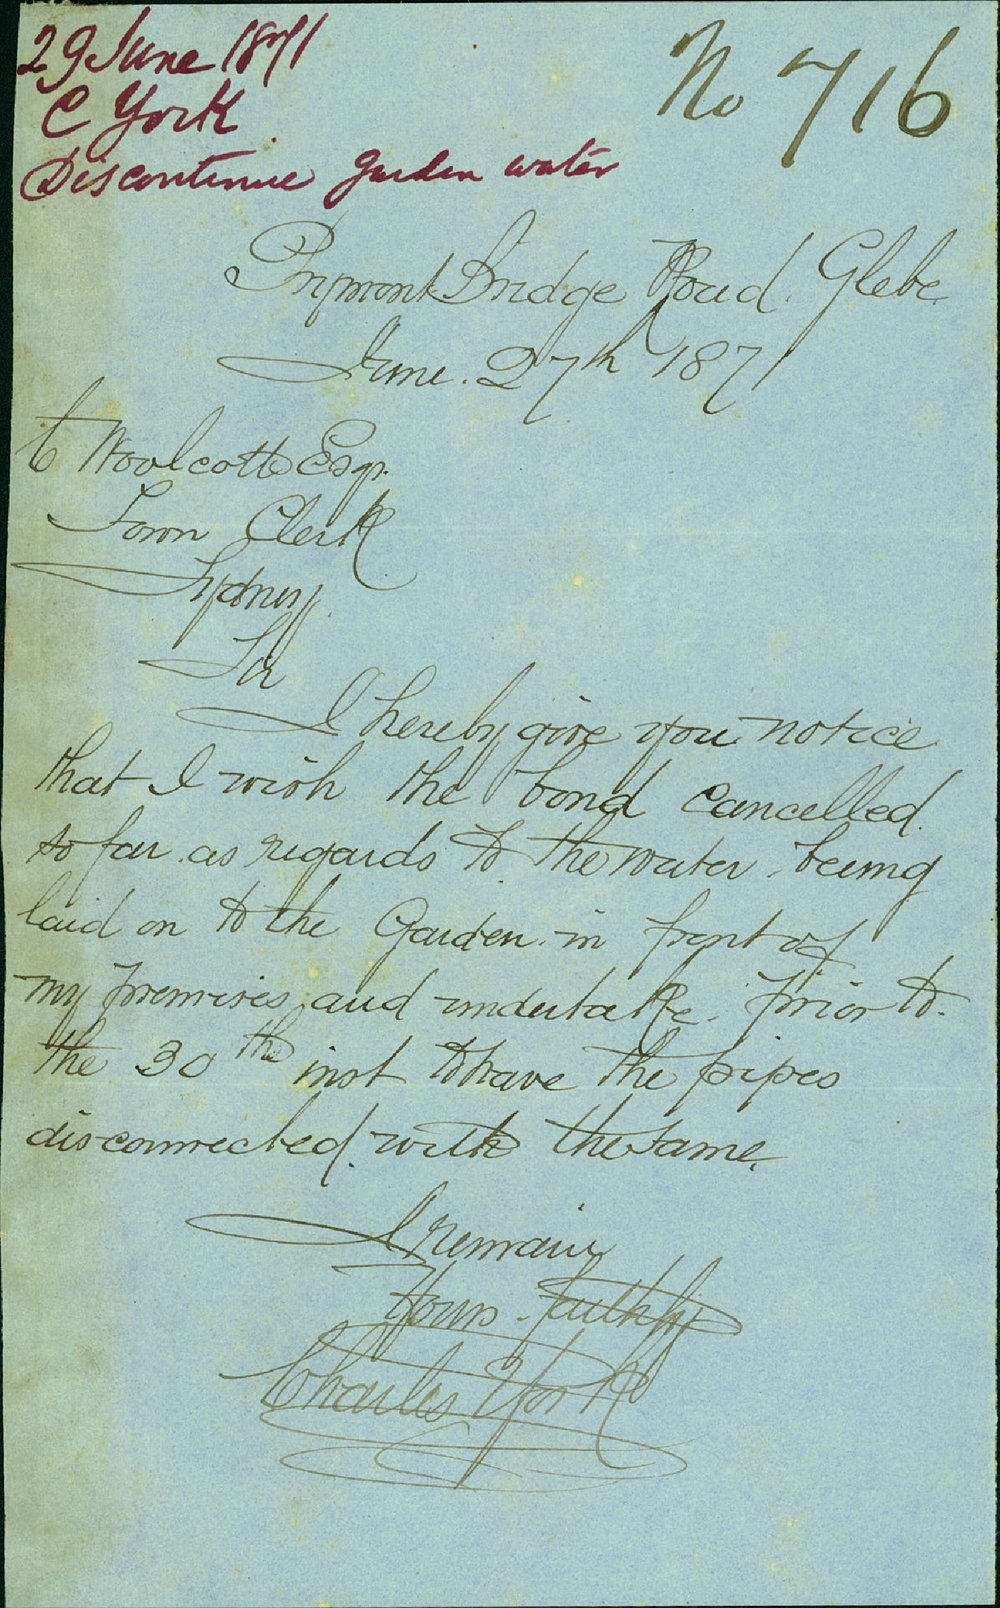 29 June 1871
C York
Discontinue garden water
No 716
Pyrmont Bridge Road. Glebe
June. 27th 1871
C Woolcott Esqr.
Town Clerk
Sydney.
Sir
I hereby give you notice
that I wish the bond cancelled.
so far as regards to the water being
laid on to the Garden in front of
my premises and undertake. prior to.
the 30th inst to have the pipes
disconnected. with the same.
I remain
Yours faithfy
Charles York